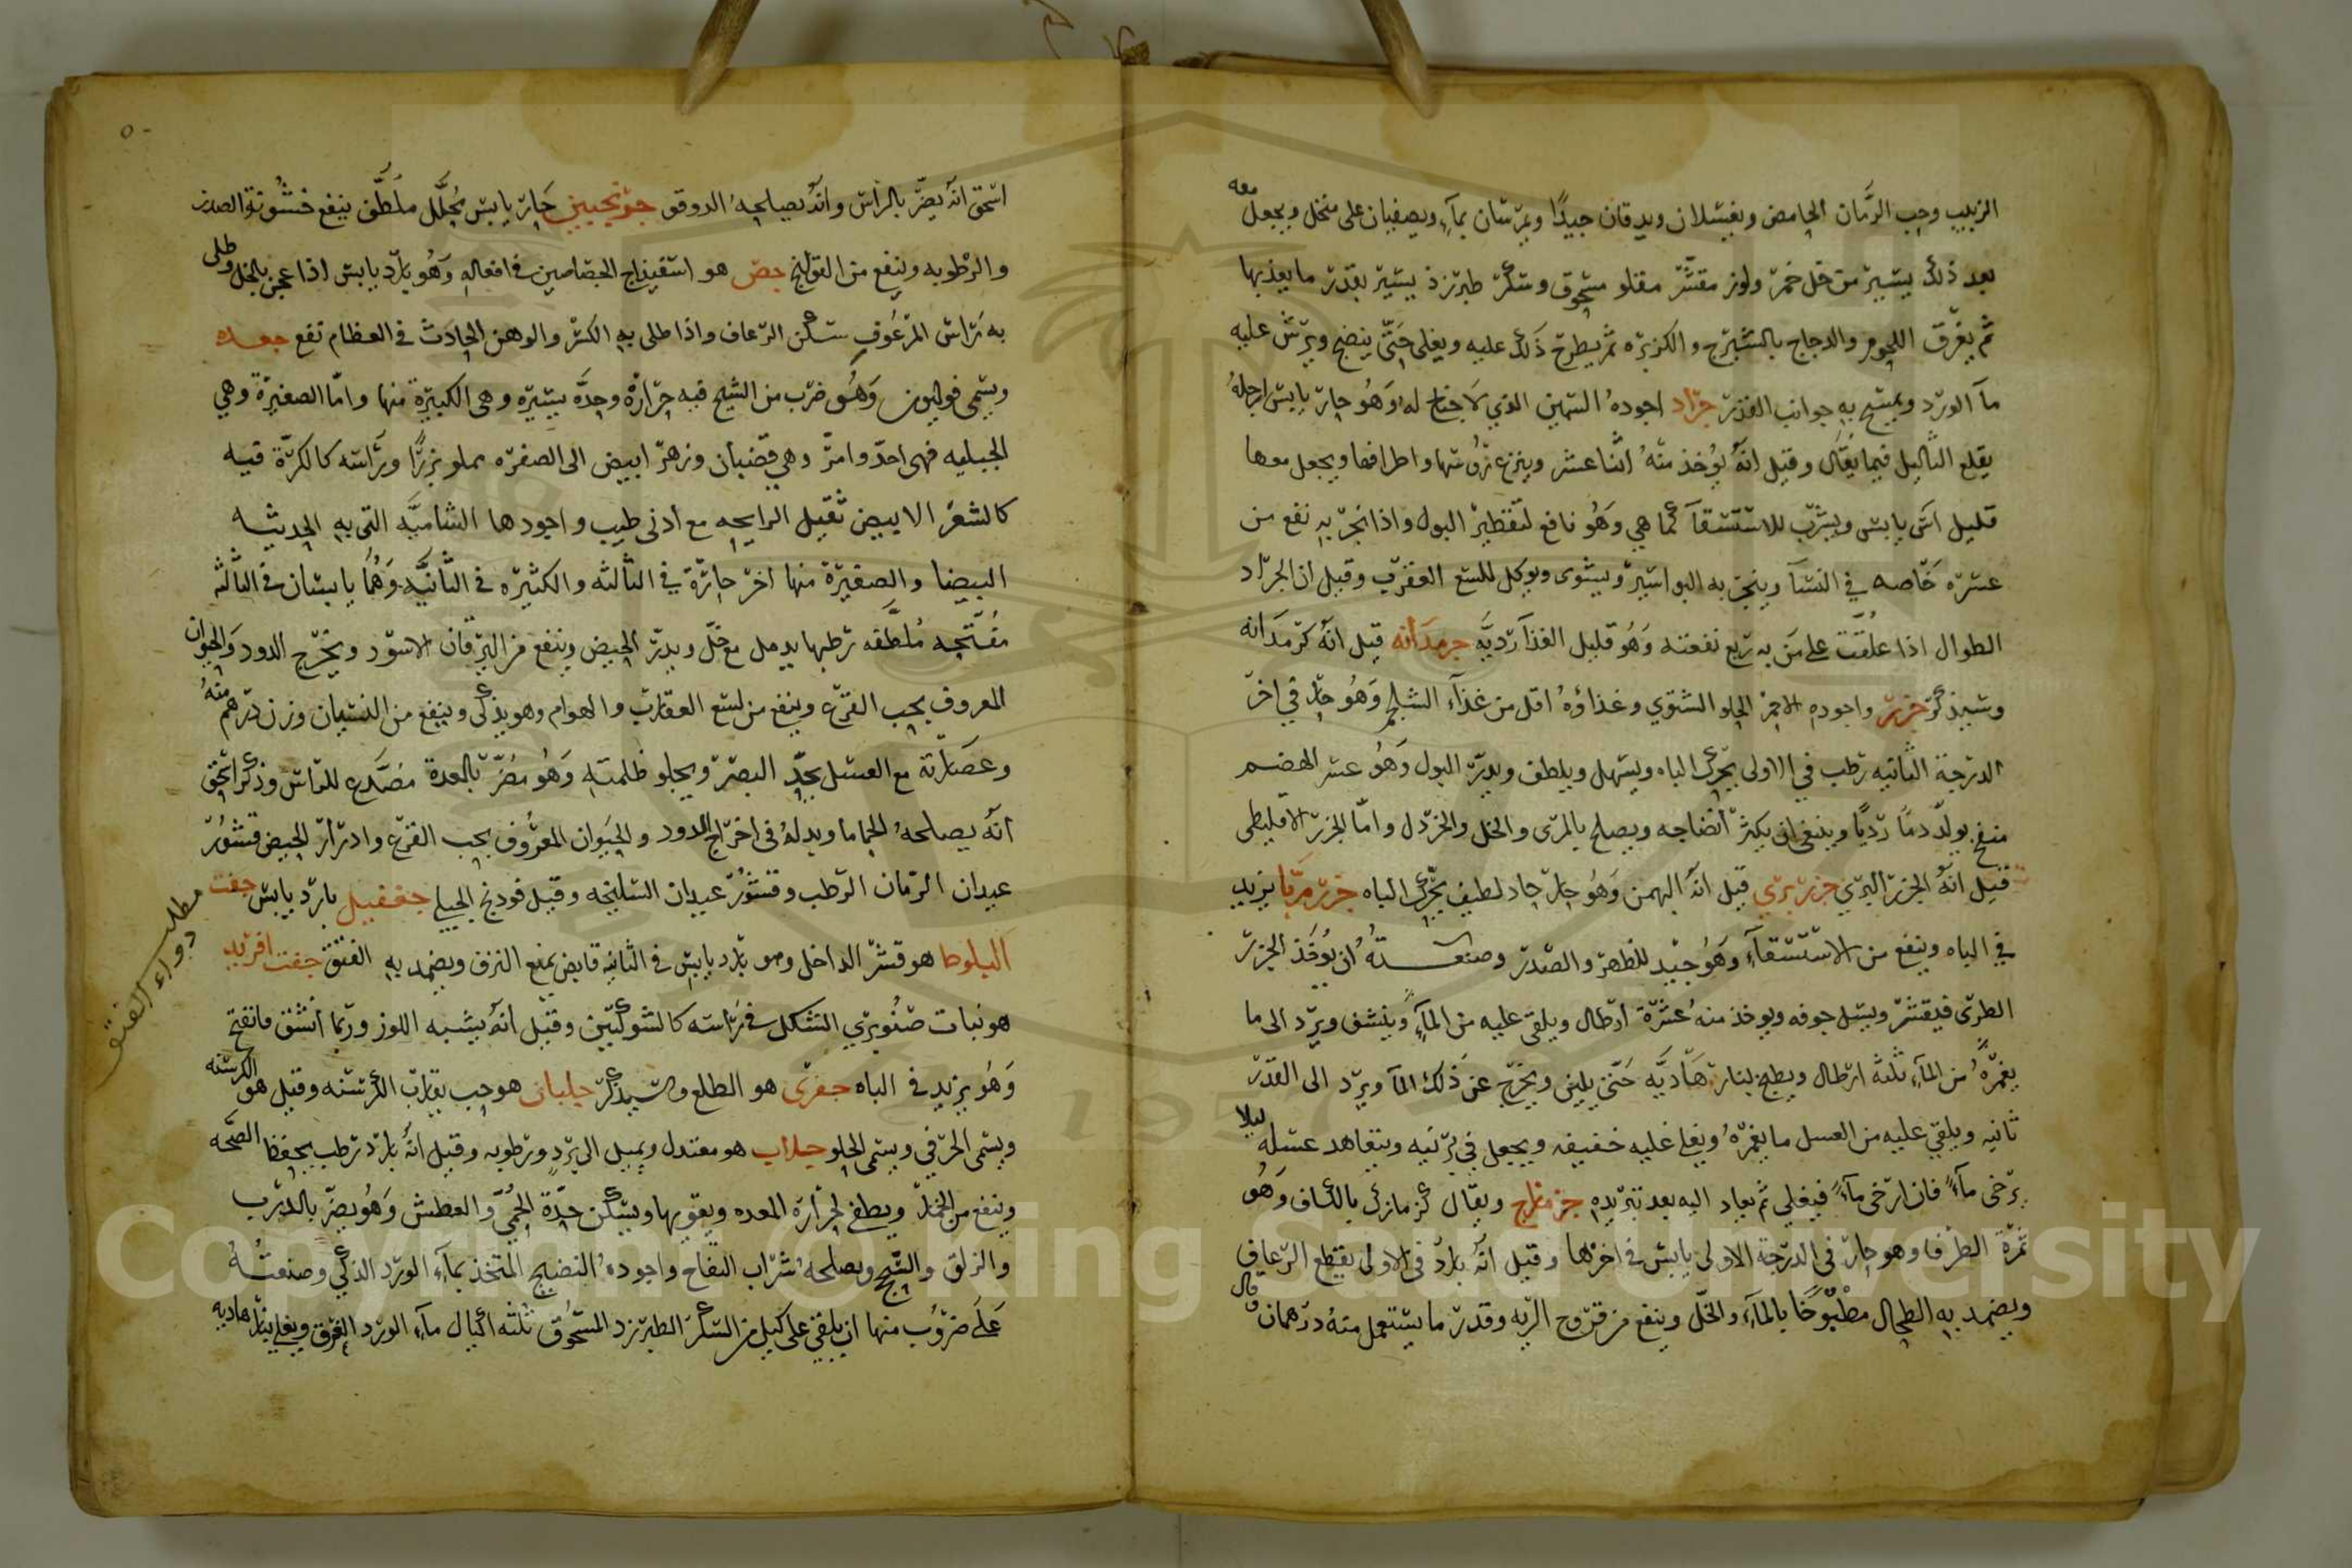 الزبيب وحب الرمان الحامض ويغسلان ويدقان جيدًا ويمرسان بماء ويصفيان على منخل ويجعل معه
بعد ذلك يسير من خل خمر ولوز مقشر مقلو مسحوق وسكر طبرزد يسير بقدر ما يعذبها
ثم يعرق اللحوم والدجاج بالشيرج والكزبره ثم يطرح ذلك عليه ويغلى حتى ينضج ويرش عليه
مآ الورد ويمسح به جوانب القدر جراد اجوده السمين الذي لا جناح له وهو حار يابس ارجله
يقلع الثآليل فيما يقال وقيل انه يوخذ منه اثنا عشر وينزع رؤسها واطرافها ويجعل معها
قليل آس يابس ويشرب للاستسقآ كما هي وهو نافع لتقطير البول واذا تبخر به نفع من
عسره خاصه في النسآ ويتبخر به للبواسير ويشوى ويوكل للسع العقرب وقيل ان الجراد
الطوال اذا علقت على من به ربع نفعته وهو قليل الغذآ رديه جرمدانه قيل انه كرمدانه
وسيذكر جزر واجوده الاحمر الحلو الشتوي وغذاؤه اقل من غذآء الشلجم وهو حار في اخر
الدرجة الثانيه رطب في الاولى يحرك الباه ويسهل ويلطف ويدر البول وهو عسر الهضم
منفخ يولد دمًا رديًا وينبغي ان يكثر انضاجه ويصلح بالمرى والخل والخردل واما الجزر الاقليطى
قيل انه الجزر البري جزر بري قيل انه البهمن وهو حار حاد لطيف يحرك الباه جزر مربا يزيد
في الباه وينفع من الاستسقآء وهو جيد للظهر والصدر وصنعته ان يوخذ الجزر
الطرى فيقشر ويسل جوفه ويوخذ منه عشرة ارطال ويلقى عليه من المآء وينشف ويرد الى ما
يغمره من المآء ثلثة ارطال ويطبخ بنار هاديه حتى يلين ويخرج عن ذلك المآ ويرد الى القدر
ثانيه ويلقى عليه من العسل ما يغمره ويغلى غليه خفيفه ويجعل في برنيه ويتعاهد عسله ليلا
يرخى مآءً فان ارخى مآءً فيغلى ثم يعاد اليه بعد تبريده جزمازج ويقال كزمازك بالكاف وهو
ثمرة الطرفا وهو حار في الدرجة الاولى يابس في اخرها وقيل انه بارد في الاولى يقطع الرعاف
ويضمد به الطحال مطبوخًا بالمآء والخل وينفع من قروح الريه وقدر ما يستعمل منه درهمان قال
٥٠
اسحق انه يضر بالراس وانه يصلحه الدوقو جرنجبين حار يابس محلل ملطف ينفع خشونة الصدر
والرطوبه وينفع من القولنج جص هو اسفيذاج الجصاصين في افعاله وهو بارد يابس اذا عجن بالخل وطلى
به راس المرعوف سكن الرعاف واذا طلى به الكسر والوهن الحادث في العظام نفع جعده
ويسمى فوليون وهو ضرب من الشيح فيه حرارة وحده يسيره وهى الكبيرة منها واما الصغيرة وهي
الجبليه فهى احد وامر وهي قضبان وزهر ابيض الى الصفره مملو بزرًا وراسه كالكرة فيه
كالشعر الابيض ثقيل الرايحه مع ادنى طيب واجودها الشاميه التى به الحديثه
البيضا والصغيرة منها اخر حارة في الثالثه والكبيره في الثانيه وهما يابستان في الثالثه
مفتحه ملطفه رطبها يدمل مع خل ويدر الحيض وينفع من اليرقان الاسود ويخرج الدود والحيوان
المعروف بحب القرع وينفع من لسع العقارب والهوام وهو يذكى وينفع من النسيان وزن درهم منه
وعصارته مع العسل يحد البصر ويجلو ظلمته وهو مضر بالمعدة مصدع للراس وذكر اسحق
انه يصلحه الحماما وبدله في اخراج الدود والحيوان المعروف بحب القرع وادرار الحيض قشور
عيدان الرمان الرطب وقشور عيدان السليخه وقيل فودنج الجبلى جغفيل بارد يابس جفت
البلوط هو قشر الداخل وهو بارد يابس في الثانيه قابض يمنع النزف ويضمد به الفتق جفت افريد
هو نبات صنوبري الشكل في راسه كالشوكتين وقيل انه يشبه اللوز وربما انشق فانفتح
وهو يزيد في الباه جفرى هو الطلع وسيذكر جلبان هو حب يقارب الكرسنه وقيل هو الكرسنه
ويسمى الحرفي ويسمى الحلو جلاب هو معتدل ويميل الى برد ورطوبه وقيل انه بارد رطب يحفظ الصحه
وينفع من الخمار ويطفى حرارة المعده ويقويها ويسكن حدة الحمى والعطش وهو يضر بالدرب
والزلق والسحج ويصلحه شراب التفاح واجوده النضيج المتخذ بمآء الورد الذكي وصنعته
على ضروب منها ان يلقى على كيل من السكر الطبرزد المسحوق ثلثه اكيال مآء الورد العرق ويغلى بنار هاديه
مطلب
دواء الفتق
Copyright © King Saud University
1957